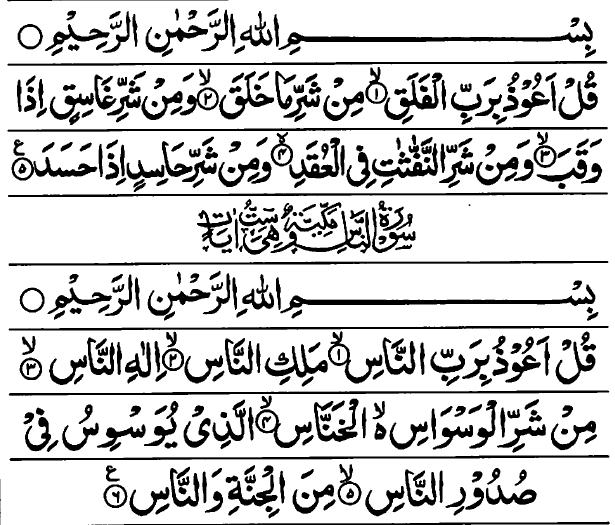 بِسْمِ اللهِ الرَّحْمٰنِ الرَّحِيْمِ ○
قُلْ اَعُوْذُ بِرَبِّ الْفَلَقِ ۙ﴿۱﴾ مِنْ شَرِّ مَا خَلَقَ ۙ﴿۲﴾ وَمِنْ شَرِّ غَاسِقٍ اِذَا
وَقَبَ ۙ﴿۳﴾ وَمِنْ شَرِّ النَّفّٰثٰتِ فِي الْعُقَدِ ۙ﴿۴﴾ وَمِنْ شَرِّ حَاسِدٍ اِذَا حَسَدَ ﴿۵﴾ ع
سُوْرَةُ النَّاسِ مَكِّيَّةٌ وَّهِيَ سِتُّ اٰيَاتٍ
بِسْمِ اللهِ الرَّحْمٰنِ الرَّحِيْمِ ○
قُلْ اَعُوْذُ بِرَبِّ النَّاسِ ۙ﴿۱﴾ مَلِكِ النَّاسِ ۙ﴿۲﴾ اِلٰهِ النَّاسِ ۙ﴿۳﴾
مِنْ شَرِّ الْوَسْوَاسِ ۵ۙ الْخَنَّاسِ ۙ﴿۴﴾ الَّذِيْ يُوَسْوِسُ فِيْ
صُدُوْرِ النَّاسِ ۙ﴿۵﴾ مِنَ الْجِنَّةِ وَالنَّاسِ ﴿۶﴾ ع